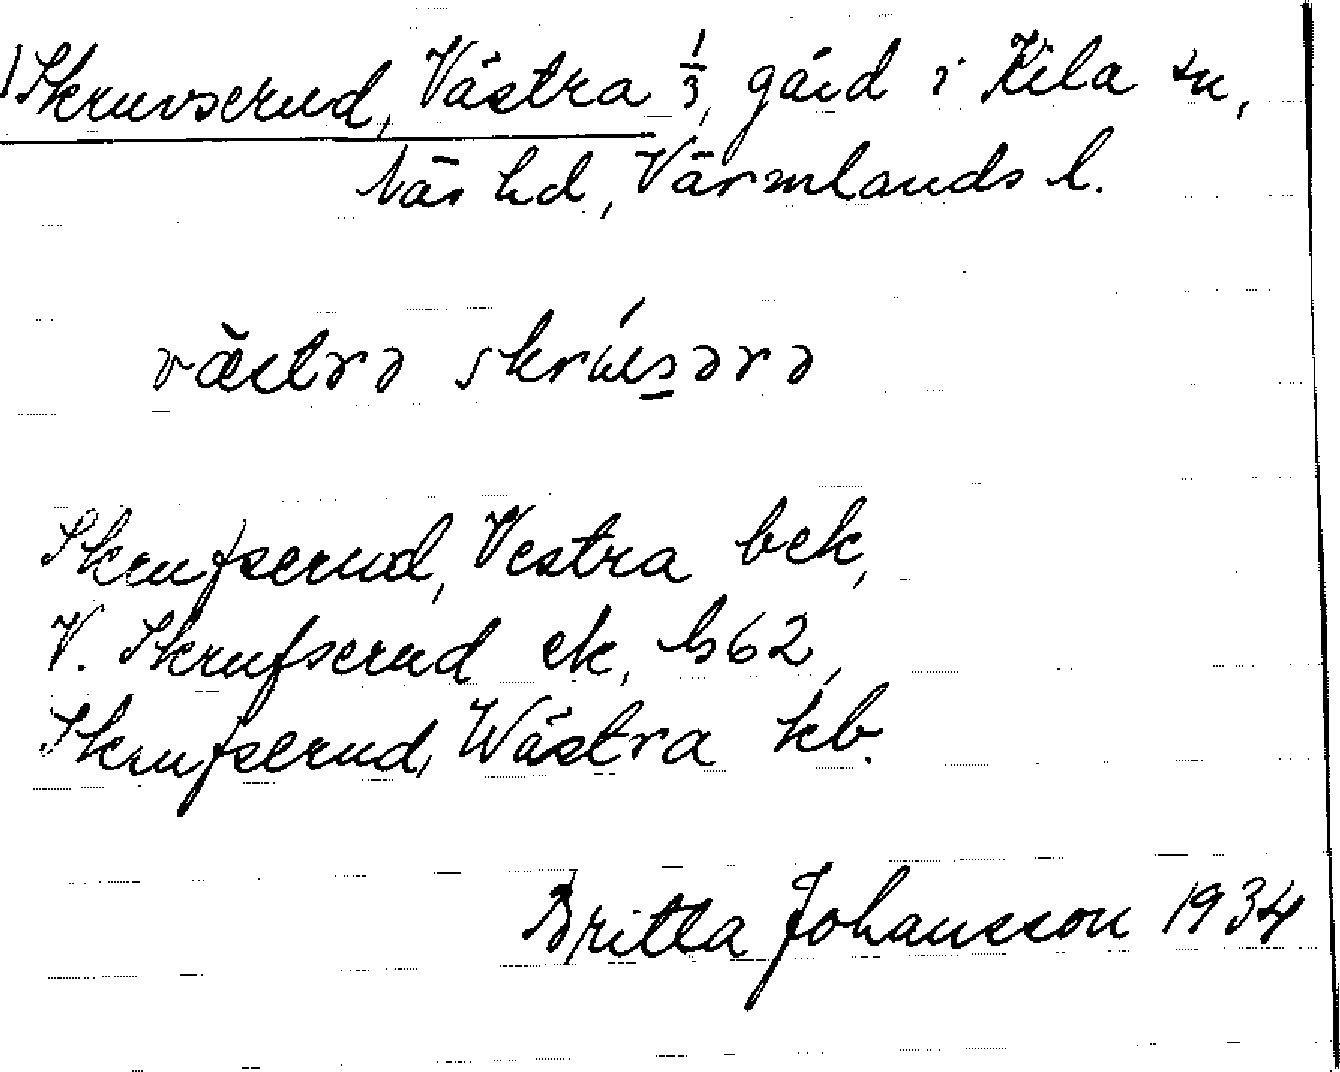 1) Skruvserud, Västra 1/3, gård i Kila sn,
Näs hd, Värmlands l.
västrə skrúsərə
Skrufserud, Vestra bek,
V. Skrufserud ek, b62,
Skrufserud, Wästra kb.
Britta Johansson 1934